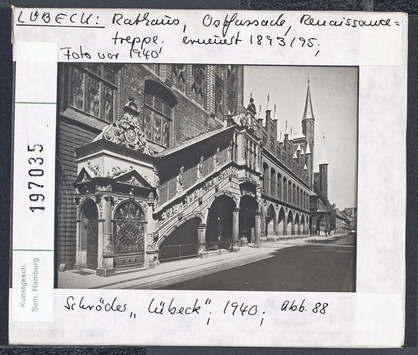 LÜBECK: Rathaus, Ostfassade, Renaissance=
treppe. erneuert 1893/95;
Foto vor 1940
197035
Kunstgesch.
Sem. Hamburg
Schröder „Lübeck"; 1940; Abb. 88